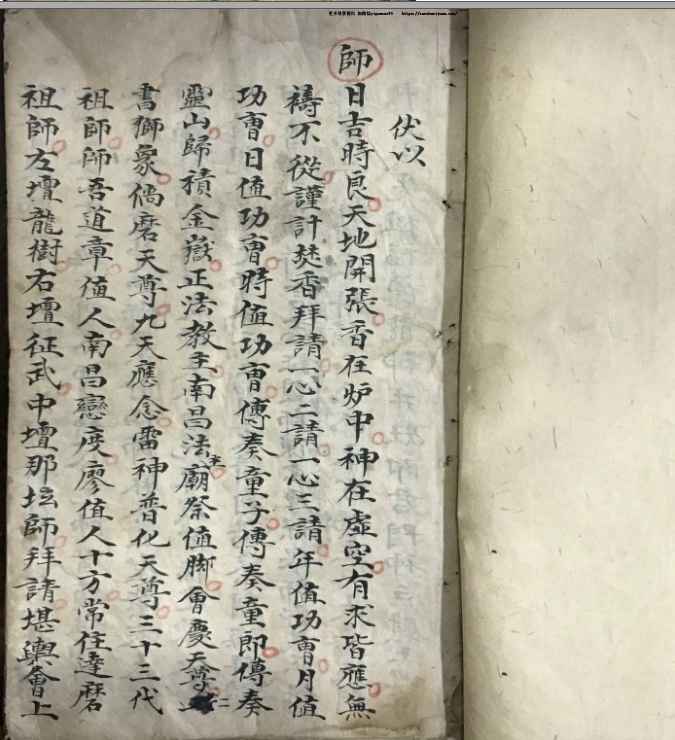 伏以
師日吉時良天地開張香在炉中神在虛空有求皆應無
禱不從謹計焚香拜請一心二請一心三請年值功曹月值
功曹日值功曹時值功曹傳奏童子傳奏童即傳奏
靈山歸積金嶽正法教主南昌法主廟祭值脚會慶天尊
書獅象偈磨天尊九天應念雷神普化天尊三十三代
祖師師吾道章值人南昌戀度廖值人十方常住達磨
祖師左壇龍樹右壇征武中壇那坛師拜請堪輿會上